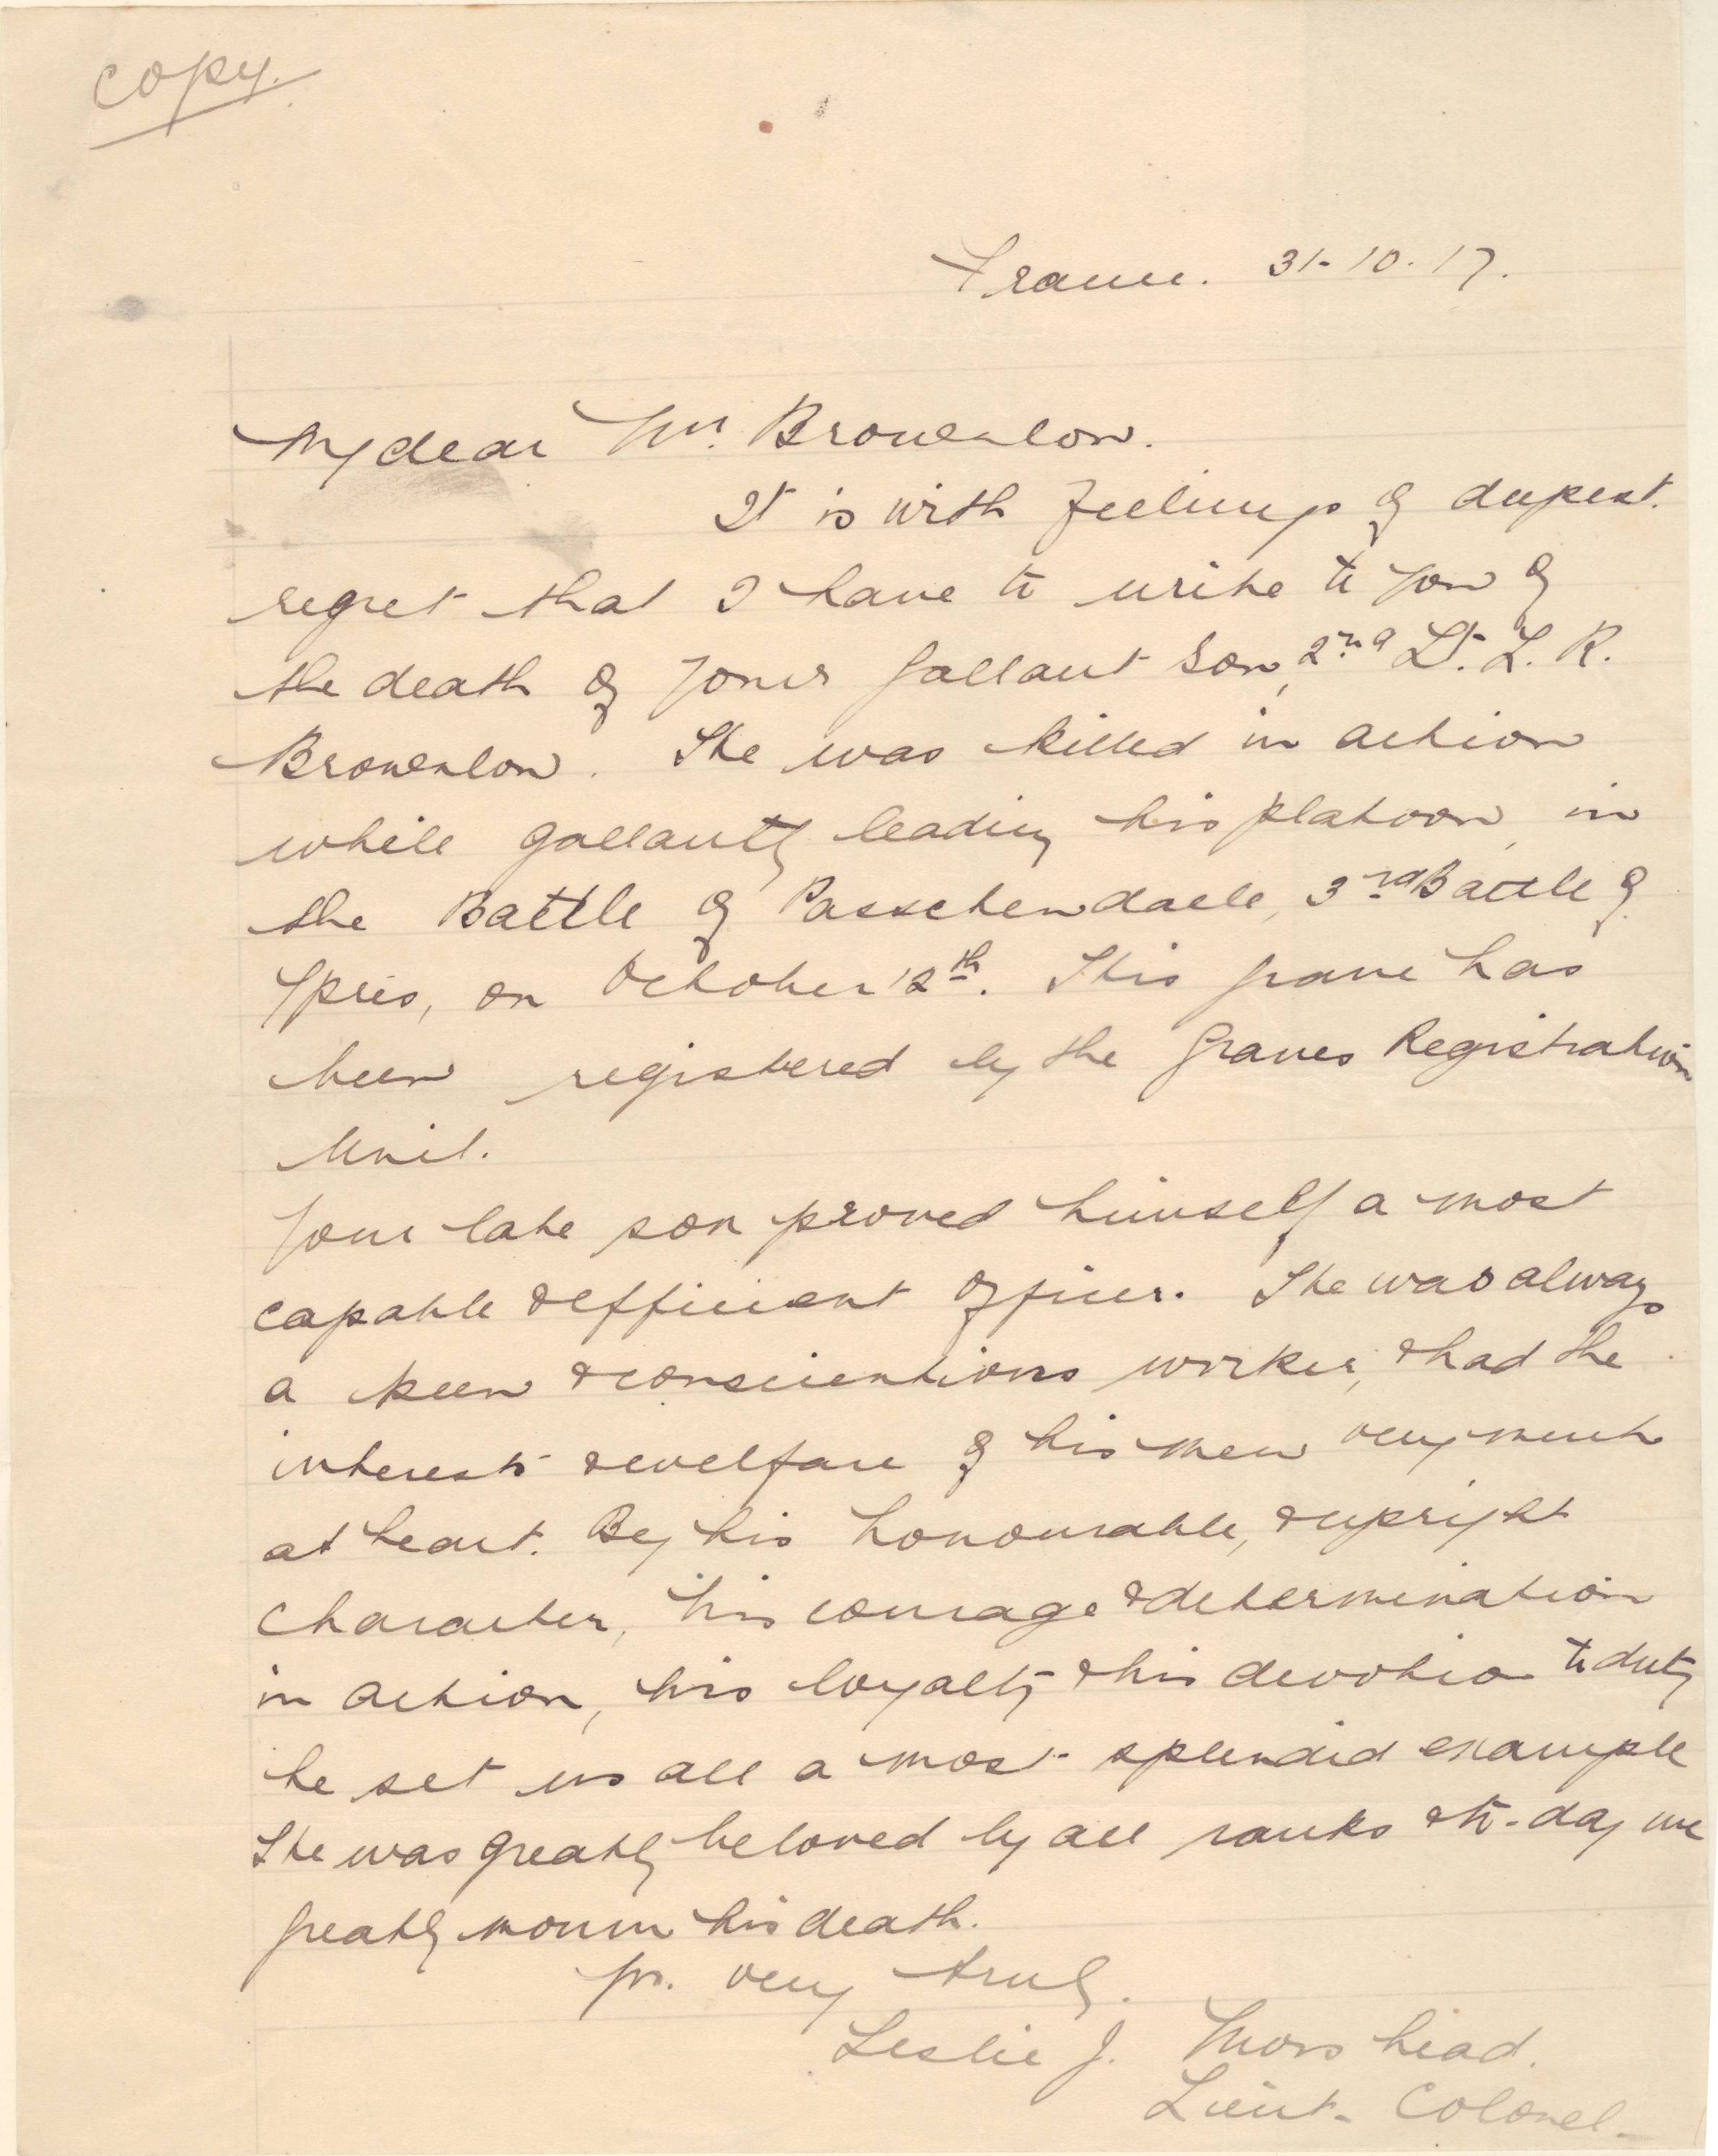 Copy.
France. 31-10-17.
My dear Mr. Brownlow.
It is with feelings of deepest
regret that I have to write to you of
the death of your gallant son, 2nd Lt. L. R.
Brownlow. He was killed in action
while gallantly leading his platoon, in
the Battle of Passchendaele, 3rd Battle of
Ypres, on October 12th. His grave has
been registered by the Graves Registration
Unit.
Your late son proved himself a most
capable & efficient officer. He was always
a keen & conscientious worker, & had the
interests & welfare of his men very much
at heart. By his honourable, & upright
character, his courage & determination
in action, his loyalty & his devotion to duty
he set us all a most splendid example
He was greatly beloved by all ranks & to-day we
greatly mourn his death.
Yrs. very truly.
Leslie J. Morshead.
Lieut- Colonel-